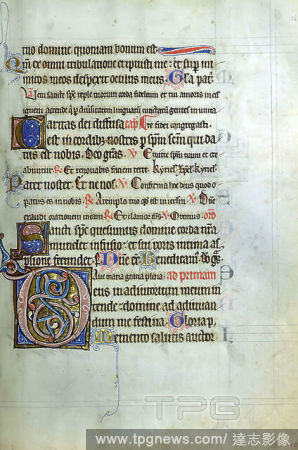 tuo domine quoniam bonum est
Qm ex omni tribulatione eripuisti me: et sup ini
micos meos despexit oculus meus. Gla pat.
Veni sancte sps reple tuorum corda fidelium et tui amoris in eis
ignem accende q p diversitatem linguarum cunctarum gentes in unita
Caritas dei diffusa cap te fidei congregasti
est in cordibz nostris p spm scm qui da
tus est nobis. Deo gras. V Emitte spm tuum et cre
abuntur. R Et renovabis faciem terre. Kyriel. Xpel. Kyriel.
Pater noster. Et ne nos. V Confirma hoc deus quod o
patus es in nobis. R A templo tuo qd est in ierusalem. V Dne
exaudi orationem meam. R Et clamor. V Oremus. oro
Sancti sps quesumus domine corda nra
mundet infusio: et sui roris intima as
psione fecundet. Dne ex. Benedicam. Do gas.
Ave maria gratia plena. ad primam
Deus in adiutorium meum in
tende: domine ad adiuvan
dum me festina. Gloria p.
Memento salutis auctor
TPG
www.tpgnews.com/達志影像